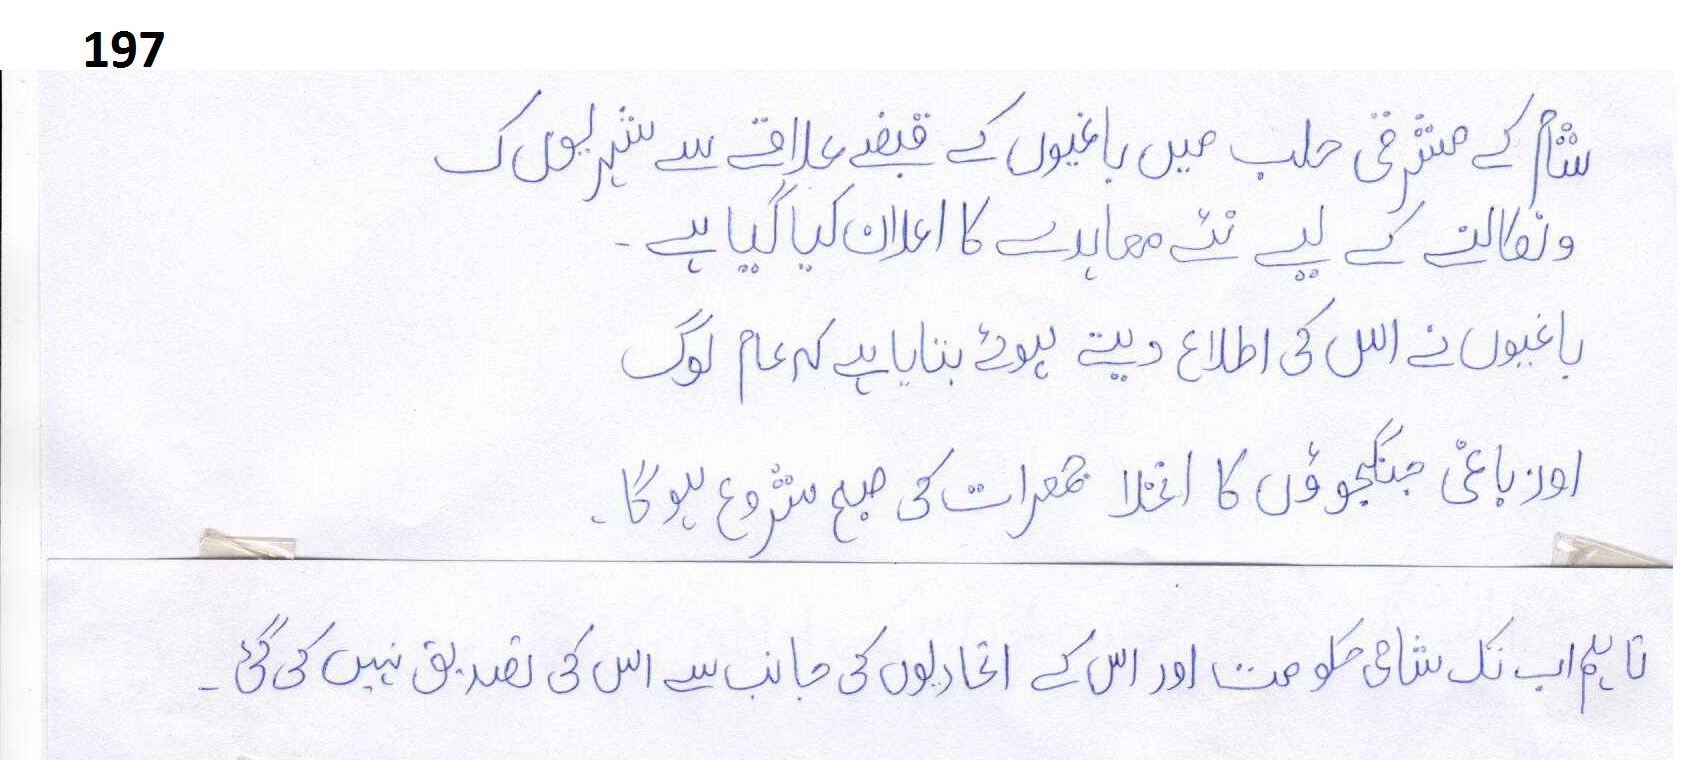 197
شام کے مشرقی حلب میں باغیوں کے قبضے علاقے سے شہریوں ک
و نکالنے کے لیے نئے معاہدے کا اعلان کیا گیا ہے ۔
باغیوں نے اس کی اطلاع دیتے ہوئے بتایا ہے کہ عام لوگ
اور باغی جنگجوؤں کا انخلا جمعرات کی صبح شروع ہو گا ۔
تاہم اب تک شامی حکومت اور اس کے اتحادیوں کی جانب سے اس کی تصدیق نہیں کی گئی ۔